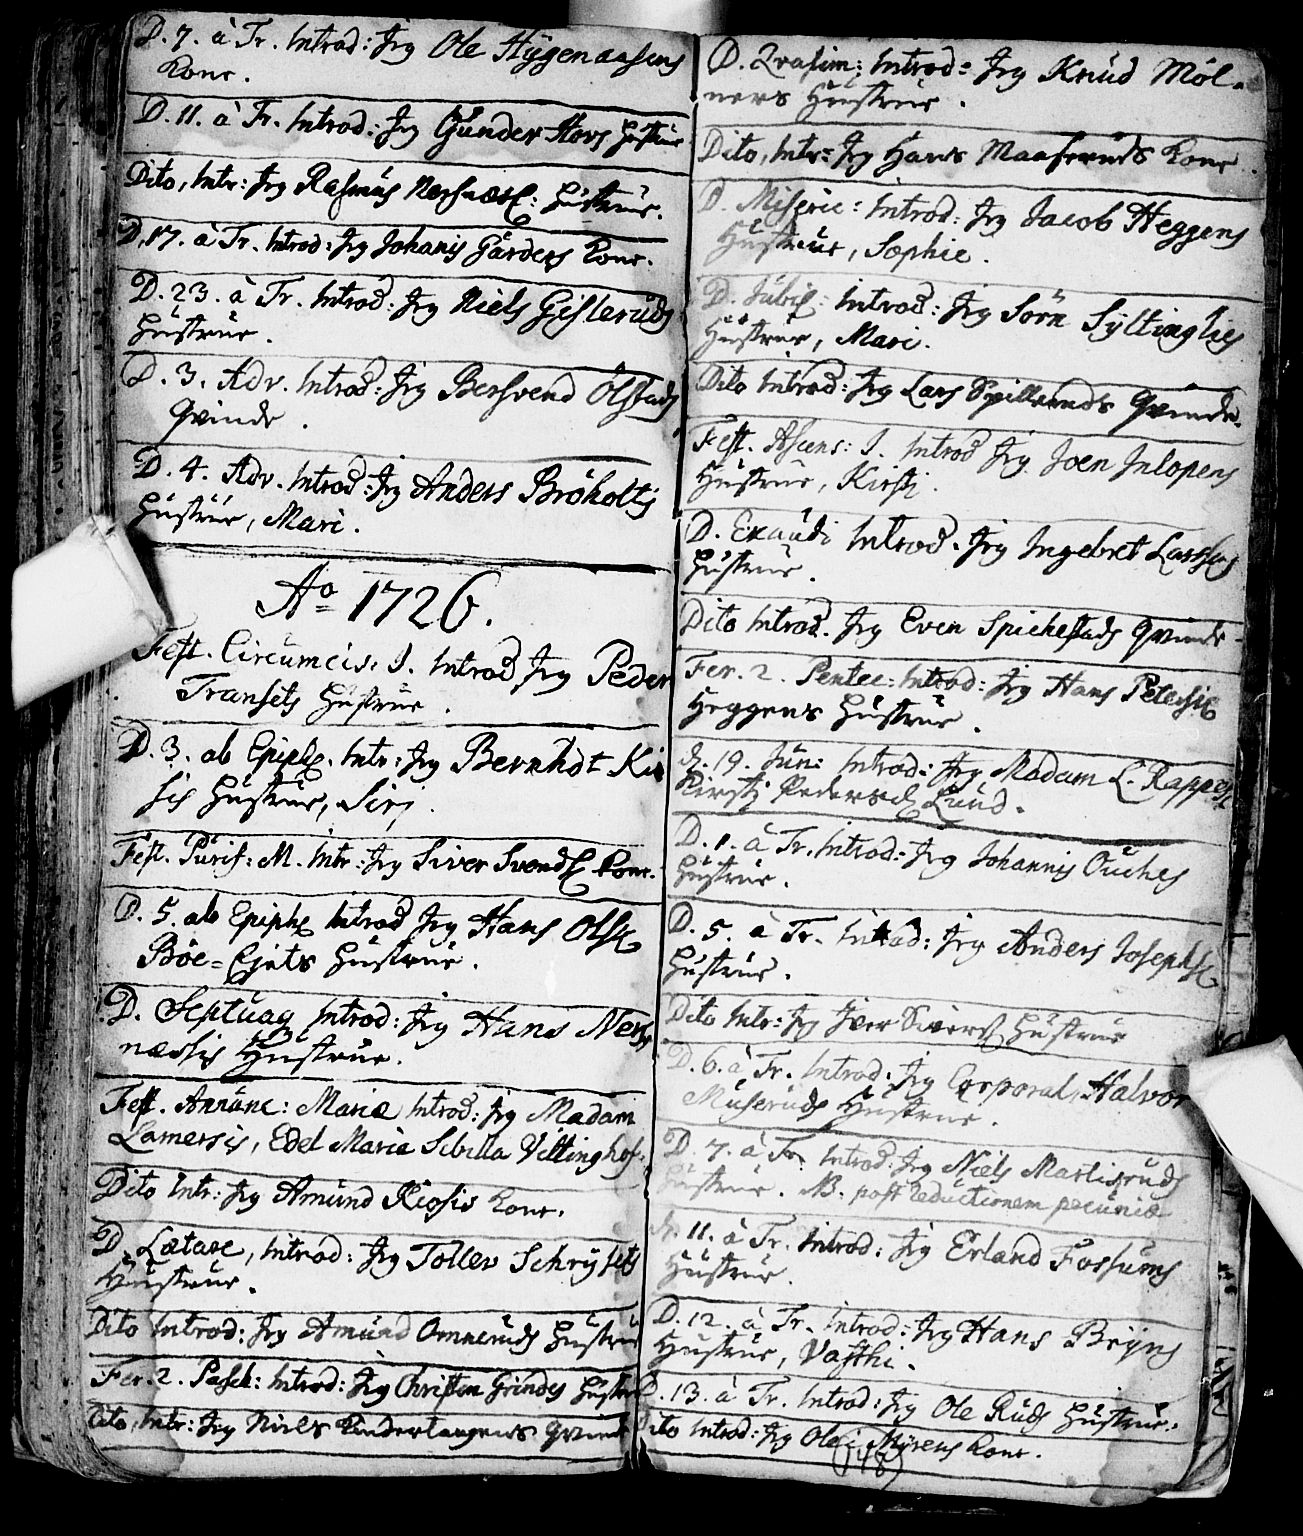 D. 7. à Tr. Introd: Jeg Ole Hÿgenaasens
Kone.
D. 11. à Tr. Introd: Jeg Gunder Hovs Hustrue
Dito, Intr: Jeg Rasmus Hustrue.
D. 17. à Tr. Introd: Jeg Johanis Gårders Kone.
D. 23. à Tr. Introd: Jeg Niels Gisleruds
Hustrue.
D. 3. Adv. Introd: Jeg Bersvend Ölstads
Qvinde.
D. 4. Adv. Introd: Jeg Anders Bröholts
Hustrue, Mari.
Ao 1726.
Fest. Circumcis: J. Introd Jeg Peder
Transets Hustrue.
D. 3. ab Epiph. Intr: Jeg Bernhdt Kio
sis Hustrue, Siri.
Fest. Purif: M. Intr: Jeg Siver Svends Kone.
D. 5. ab Epiph Introd Jeg Hans Ols
Böe-Ejets Hustrue.
D. Septuag Introd: Jeg Hans Ners
næssis Hustrue.
Fest. Annunc: Mariæ Introd: Jeg Madam
Lamersis, Edel Maria Sibilla Vittinghof:
Dito Intr: Jeg Amund Kiosis Kone.
D. Lætare, Introd: Jeg Tollev Schrÿsets
Hustrue.
Dito Introd: Jeg Amund Omneruds Hustrue
Fer. 2. Pasch: Introd: Jeg Christen Grinders Hustrue
Dito, Intr: Jeg Niels Kindertangens Qvinde
D. Qvasim: Introd: Jeg Knud Möl-
ners Hustrue.
Dito, Intr: Jeg Hans Maaseruds Kone.
D. Miseric: Introd: Jeg Jacob Heggens
Hustrue, Sophie.
D. Jubil: Introd: Jeg Sörn Sÿltinglies
Hustrue, Mari.
Dito Introd: Jeg Lars Spilleruds Qvinde.
Fest. Ascens: J. Introd Jeg Joen Inlopens
Hustrue, Kirsti.
D. Exaudi Introd. Jeg Ingebret Larss
Hustrue.
Dito Introd. Jeg Even Spichestads Qvinde.
Fer. 2. Pentec: Introd: Jeg Hans Peters
Heggens Hustrue.
d. 19. Jun: Introd: Jeg Madam L. Rappes
Kirsti Peders Lund.
D. 1. à Tr. Introd: Jeg Johannis Ouches
Hustrue.
D. 5. à Tr. Introd: Jeg Anders Josephs
Hustrue.
Dito Intr: Jeg Iver Sivers Hustrue
D. 6. à Tr. Introd: Jeg Corporal, Halvor
Museruds Hustrue.
D. 7. à Tr. Introd: Jeg Niels Martisruds
Hustrue. NB. post reductionem pecuniæ
D. 11. à Tr. Introd: Jeg Erland Forsums
Hustrue.
D. 12. à Tr. Introd: Jeg Hans Brÿns
Hustrue, Vasthi.
D. 13. à Tr. Introd: Jeg Ole Ruds Hustrue.
Dito Introd: Jeg Ole i Mÿrens Kone.
(148)